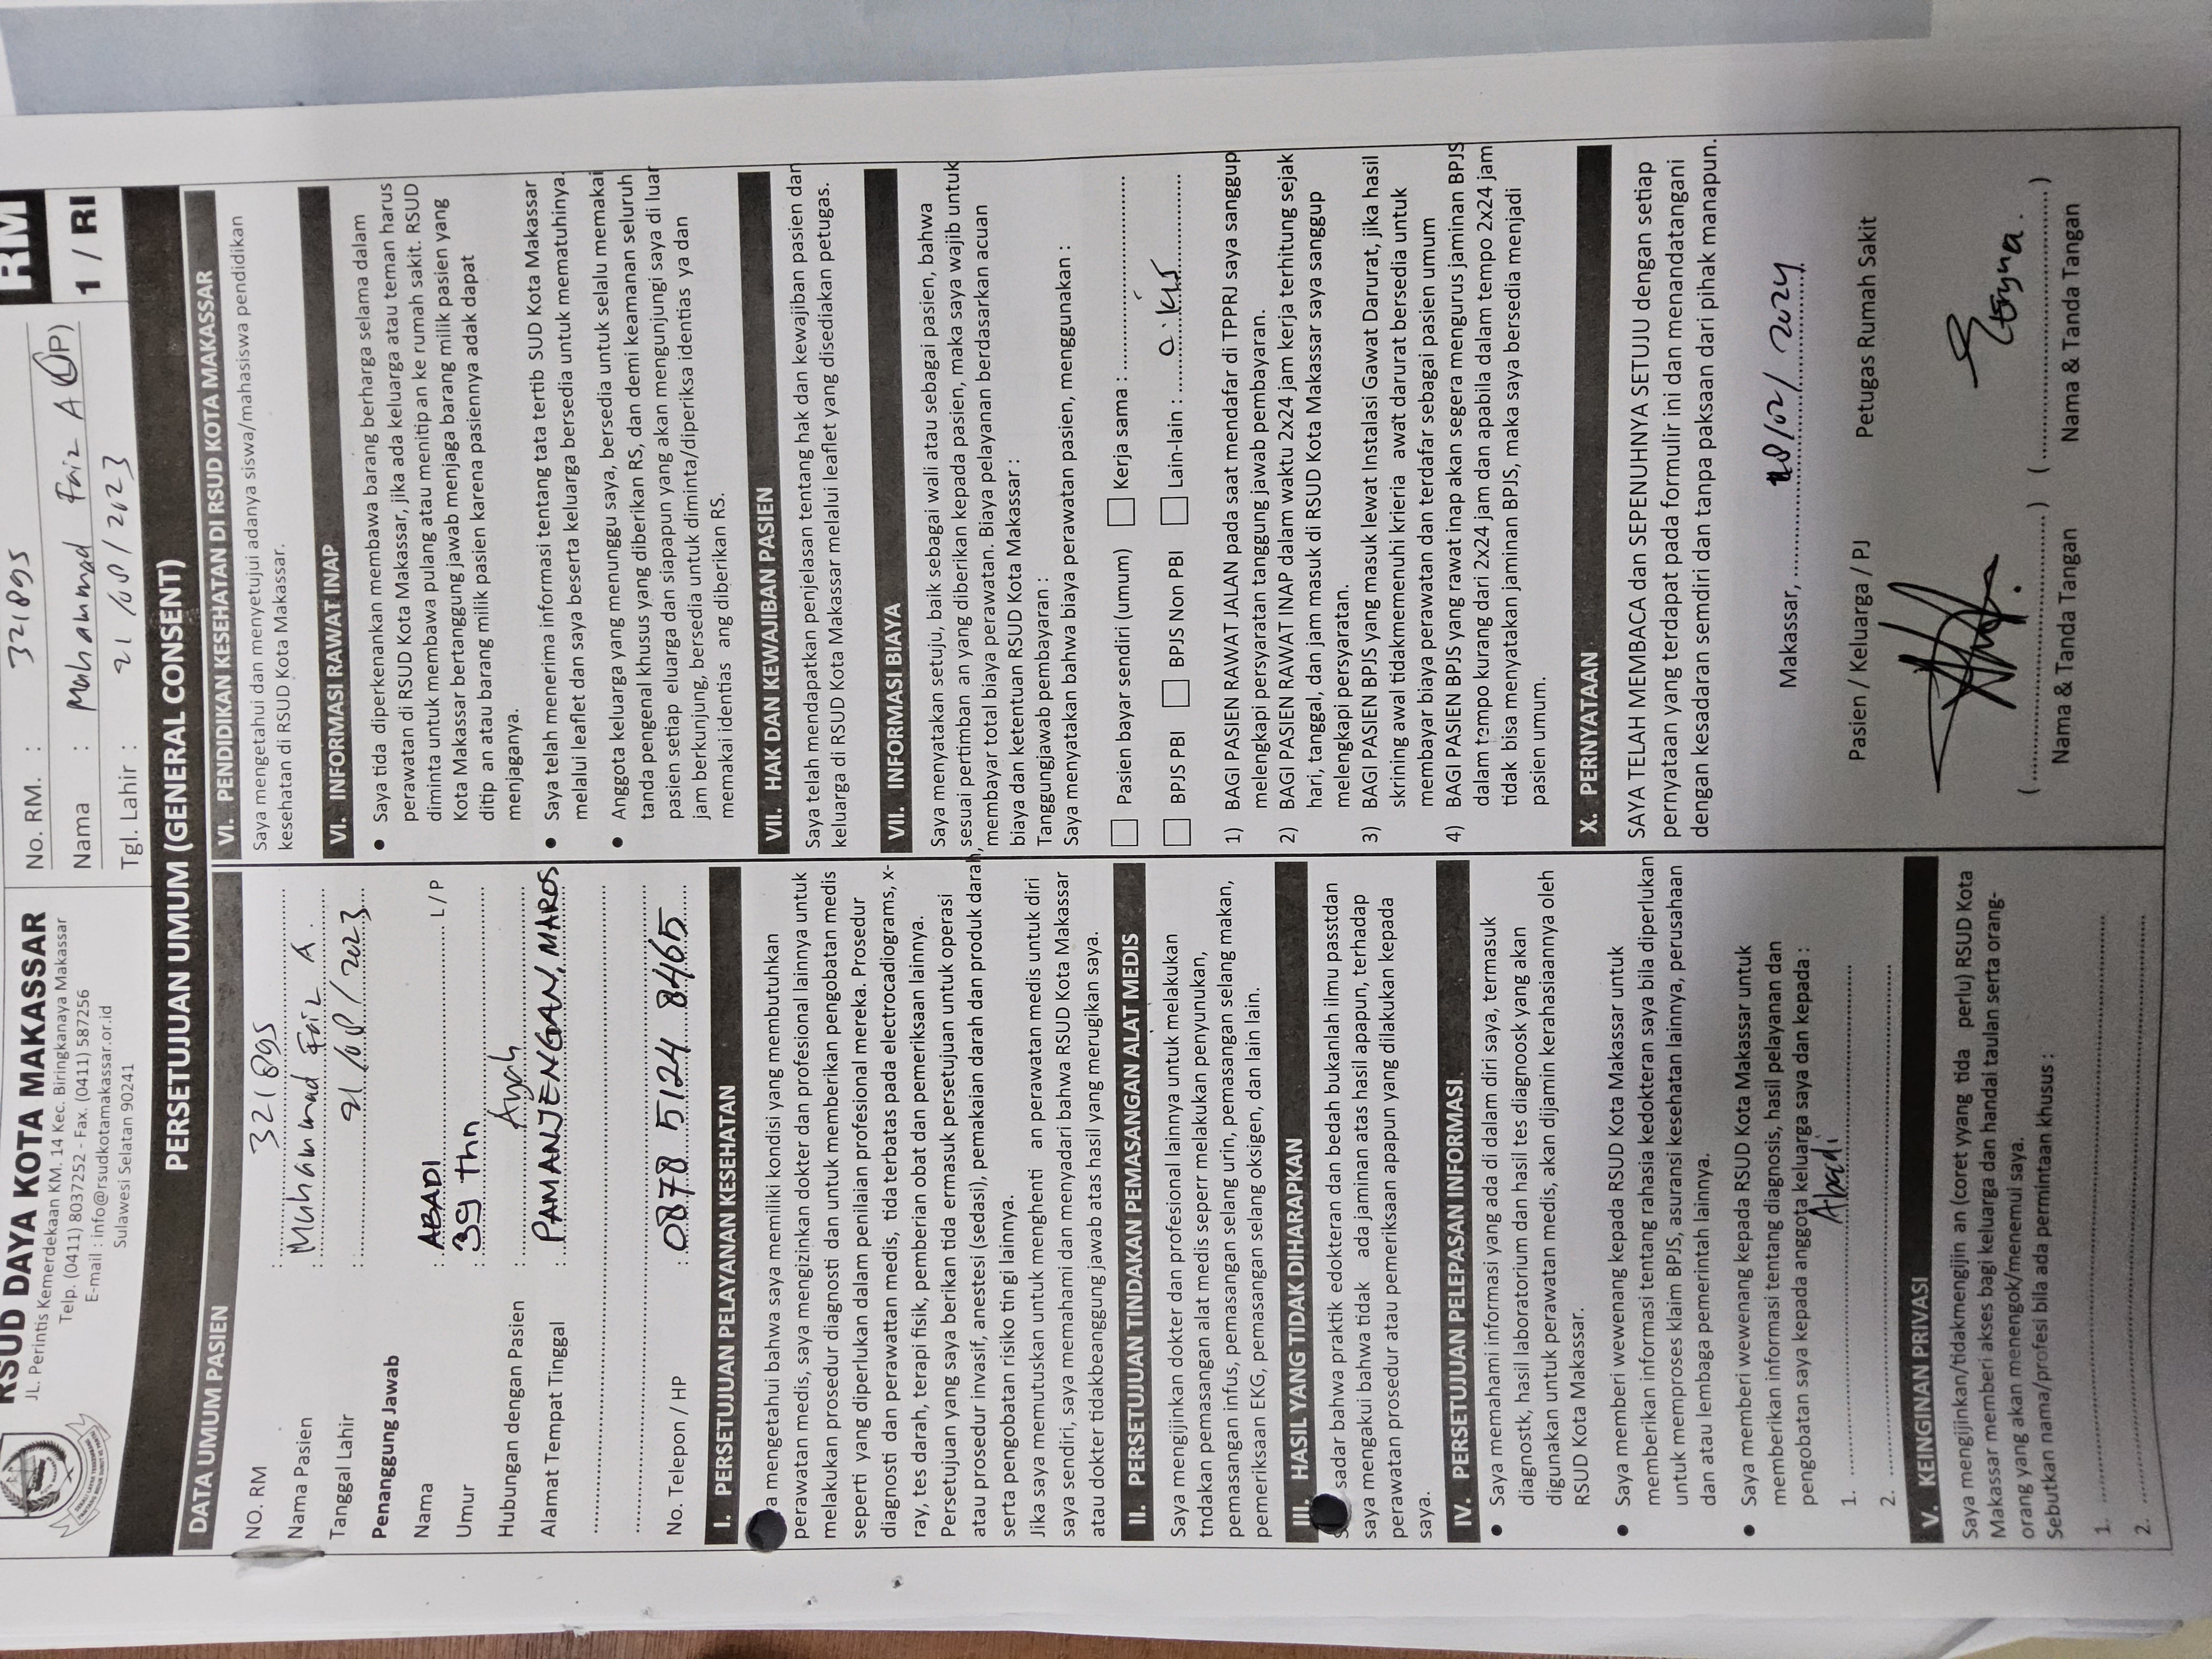 RSUD DAYA KOTA MAKASSAR
JL. Perintis Kemerdekaan KM. 14 Kec. Biringkanaya Makassar
Telp. (0411) 8037252 - Fax. (0411) 587256
E-mail : info@rsudkotamakassar.or.id
Sulawesi Selatan 90241
No. RM. : 321895
Nama : Muhammad Faiz A (L/P)
Tgl. Lahir : 21/08/2023
RM
1 / RI
PERSETUJUAN UMUM (GENERAL CONSENT)
DATA UMUM PASIEN
NO. RM : 321895
Nama Pasien : Muhammad Faiz A.
Tanggal Lahir : 21/08/2023
Penanggung Jawab
Nama : ABADI L / P
Umur : 39 thn
Hubungan dengan Pasien : Ayah
Alamat Tempat Tinggal : PAMANJENGAN, MAROS
No. Telepon / HP : 0878 5124 8465
I. PERSETUJUAN PELAYANAN KESEHATAN
a mengetahui bahwa saya memiliki kondisi yang membutuhkan
perawatan medis, saya mengizinkan dokter dan profesional lainnya untuk
melakukan prosedur diagnosti dan untuk memberikan pengobatan medis
seperti yang diperlukan dalam penilaian profesional mereka. Prosedur
diagnosti dan perawattan medis, tida terbatas pada electrocadiograms, x-
ray, tes darah, terapi fisik, pemberian obat dan pemeriksaan lainnya.
Persetujuan yang saya berikan tida ermasuk persetujuan untuk operasi
atau prosedur invasif, anestesi (sedasi), pemakaian darah dan produk darah,
serta pengobatan risiko tin gi lainnya.
Jika saya memutuskan untuk menghenti an perawatan medis untuk diri
saya sendiri, saya memahami dan menyadari bahwa RSUD Kota Makassar
atau dokter tidakbeanggung jawab atas hasil yang merugikan saya.
II. PERSETUJUAN TINDAKAN PEMASANGAN ALAT MEDIS
Saya mengijinkan dokter dan profesional lainnya untuk melakukan
tndakan pemasangan alat medis seperr melakukan penyunukan,
pemasangan infus, pemasangan selang urin, pemasangan selang makan,
pemeriksaan EKG, pemasangan selang oksigen, dan lain lain.
III. HASIL YANG TIDAK DIHARAPKAN
sadar bahwa praktik edokteran dan bedah bukanlah ilmu passtdan
saya mengakui bahwa tidak ada jaminan atas hasil apapun, terhadap
perawatan prosedur atau pemeriksaan apapun yang dilakukan kepada
saya.
IV. PERSETUJUAN PELEPASAN INFORMASI
• Saya memahami informasi yang ada di dalam diri saya, termasuk
diagnostk, hasil laboratorium dan hasil tes diagnoosk yang akan
digunakan untuk perawatan medis, akan dijamin kerahasiaannya oleh
RSUD Kota Makassar.
• Saya memberi wewenang kepada RSUD Kota Makassar untuk
memberikan informasi tentang rahasia kedokteran saya bila diperlukan
untuk memproses klaim BPJS, asuransi kesehatan lainnya, perusahaan
dan atau lembaga pemerintah lainnya.
• Saya memberi wewenang kepada RSUD Kota Makassar untuk
memberikan informasi tentang diagnosis, hasil pelayanan dan
pengobatan saya kepada anggota keluarga saya dan kepada :
1. Abadi
2.
V. KEINGINAN PRIVASI
Saya mengijinkan/tidakmengijin an (coret yyang tida perlu) RSUD Kota
Makassar memberi akses bagi keluarga dan handai taulan serta orang-
orang yang akan menengok/menemui saya.
Sebutkan nama/profesi bila ada permintaan khusus :
1.
2.
VI. PENDIDIKAN KESEHATAN DI RSUD KOTA MAKASSAR
Saya mengetahui dan menyetujui adanya siswa/mahasiswa pendidikan
kesehatan di RSUD Kota Makassar.
VI. INFORMASI RAWAT INAP
• Saya tida diperkenankan membawa barang berharga selama dalam
perawatan di RSUD Kota Makassar, jika ada keluarga atau teman harus
diminta untuk membawa pulang atau menitip an ke rumah sakit. RSUD
Kota Makassar bertanggung jawab menjaga barang milik pasien yang
ditip an atau barang milik pasien karena pasiennya adak dapat
menjaganya.
• Saya telah menerima informasi tentang tata tertib SUD Kota Makassar
melalui leaflet dan saya beserta keluarga bersedia untuk mematuhinya.
• Anggota keluarga yang menunggu saya, bersedia untuk selalu memakai
tanda pengenal khusus yang diberikan RS, dan demi keamanan seluruh
pasien setiap eluarga dan siapapun yang akan mengunjungi saya di luar
jam berkunjung, bersedia untuk diminta/diperiksa identias ya dan
memakai identias ang diberikan RS.
VII. HAK DAN KEWAJIBAN PASIEN
Saya telah mendapatkan penjelasan tentang hak dan kewajiban pasien dan
keluarga di RSUD Kota Makassar melalui leaflet yang disediakan petugas.
VII. INFORMASI BIAYA
Saya menyatakan setuju, baik sebagai wali atau sebagai pasien, bahwa
sesuai pertimban an yang diberikan kepada pasien, maka saya wajib untuk
membayar total biaya perawatan. Biaya pelayanan berdasarkan acuan
biaya dan ketentuan RSUD Kota Makassar :
Tanggungjawab pembayaran :
Saya menyatakan bahwa biaya perawatan pasien, menggunakan :
Pasien bayar sendiri (umum) Kerja sama :
BPJS PBI BPJS Non PBI Lain-lain :
1) BAGI PASIEN RAWAT JALAN pada saat mendafar di TPPRJ saya sanggup
melengkapi persyaratan tanggung jawab pembayaran.
2) BAGI PASIEN RAWAT INAP dalam waktu 2x24 jam kerja terhitung sejak
hari, tanggal, dan jam masuk di RSUD Kota Makassar saya sanggup
melengkapi persyaratan.
3) BAGI PASIEN BPJS yang masuk lewat Instalasi Gawat Darurat, jika hasil
skrining awal tidakmemenuhi krieria awat darurat bersedia untuk
membayar biaya perawatan dan terdafar sebagai pasien umum
4) BAGI PASIEN BPJS yang rawat inap akan segera mengurus jaminan BPJS
dalam tempo kurang dari 2x24 jam dan apabila dalam tempo 2x24 jam
tidak bisa menyatakan jaminan BPJS, maka saya bersedia menjadi
pasien umum.
X. PERNYATAAN
SAYA TELAH MEMBACA dan SEPENUHNYA SETUJU dengan setiap
pernyataan yang terdapat pada formulir ini dan menandatangani
dengan kesadaran semdiri dan tanpa paksaan dari pihak manapun.
Makassar, 2024
Pasien / Keluarga / PJ Petugas Rumah Sakit
( ) ( )
Nama & Tanda Tangan Nama & Tanda Tangan